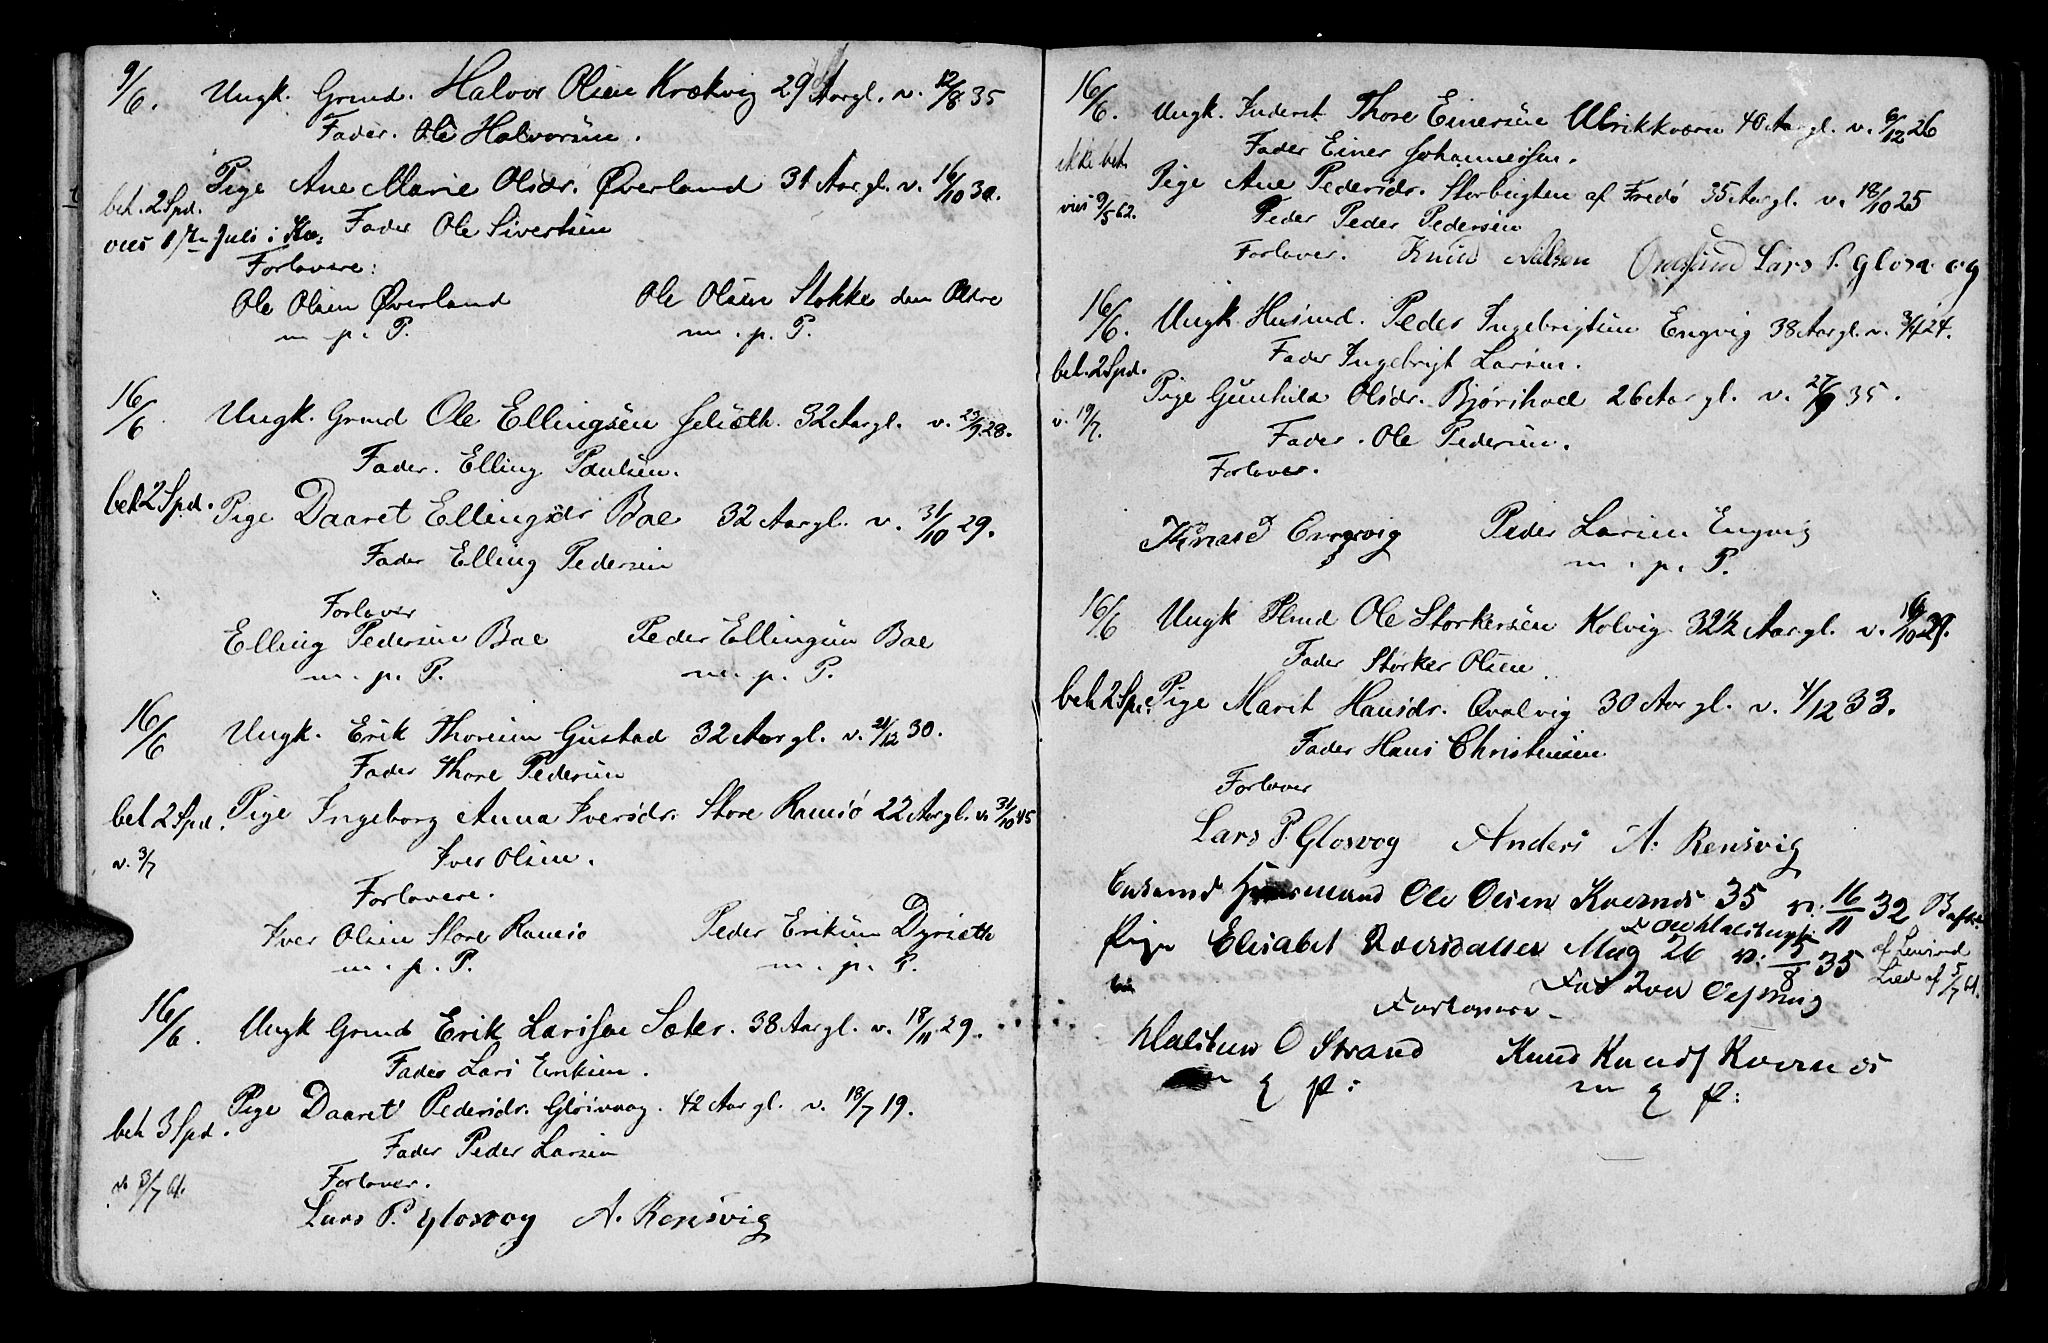 9/6. Ungk. Grmd. Halvor Olsen Krækvig 29 Aar gl. v. 12/8 35
Fader. Ole Halvorsen.
Pige Ane Marie Olsdr. Øverland 31 Aar gl. v. 16/10 30.
bet. 2 Spd.
vies 1 Juli i Kv. Fader Ole Sivertsen
Forlovere:
Ole Olsen Øverland Ole Olsen Stokke den Ældre
m. p. P. m. p. P.
16/6 Ungk. Grmd Ole Ellingsen 32 Aar gl. v. 23/9 28.
Fader. Elling Paulsen.
bet 2 Spd. Pige Daaret Ellingsdr Boe 32 Aar gl. v. 31/10 29.
Fader Elling Pedersen
Forlover
Elling Pedersen Boe Peder Ellingsen Boe
m. p. P. m. p. P.
16/6 Ungk. Erik Thoresen Gustad 32 Aar gl. v. 21/12 30.
Fader Thore Pedersen
bet 2 Spd. Pige Ingeborg Anna Iversdr. Store Ramsø 22 Aar gl. v. 31/10 45
v. 3/7 Iver Olsen.
Forlovere.
Iver Olsen Store Ramsø Peder Eriksen Dyrseth
m. p. P. m. p. P.
16/6. Ungk Grmd Erik Larssen Sæter. 38 Aar gl. v. 18/11 29.
Fader Lars Eriksen.
Pige Daaret Pedersdr. Glosvaag. 42 Aar gl. v. 18/7 19.
bet 3 Spd.
Fader Peder Larsen
v. 3/7 61. Forlover.
Lars P. Glosvog A. Rensvig
16/6. Ungk. Inderst Thore Einersen Ulrikkværn 40 Aar gl. v. 6/12 26
Fader Einer Johannessen.
ikke bet.
Pige Ane Pedersdr. Storbugten af Fredø 35 Aar gl. v. 18/10 25
vies 9/5 62.
Peder Peder Pedersen
Forlover. Knud Nilsen Omsund Lars P. Glosvog
16/6. Ungk. Husmd. Peder Ingebrigtsen Engvig 38 Aar gl. v. 3/4 24.
Fader Ingebrigt Larsen.
bet. 2 Spd.
Pige Gunhild Olsdr. Bjørshoel 26 Aar gl. v. 27/9 35.
v. 19/7.
Fader. Ole Pedersen.
Forlover.
Engvig Peder Larsen Engvig
m. p. P.
16/6 Ungk Plmd Ole Størkersen Kolvig 32½ Aar gl. v. 16/10 29.
Fader Størker Olsen.
bet 2 Spd. Pige Marit Hansdr. Qvalvig 30 Aar gl. v. 4/12 33.
Fader Hans Christensen
Forlover
Lars P. Glosvog Anders A. Rensvig
Husmand Ole Olsen Kvernes 35 v. 16/11 32
Pige Elisabet Iversdatter Mag 26 v. 5/8 35
af Lensmd
Lied af 5/7 61.
Fad Iver
Forlovere
Halsten O Strand Knud Knuds Kvernes
m. p. m p: